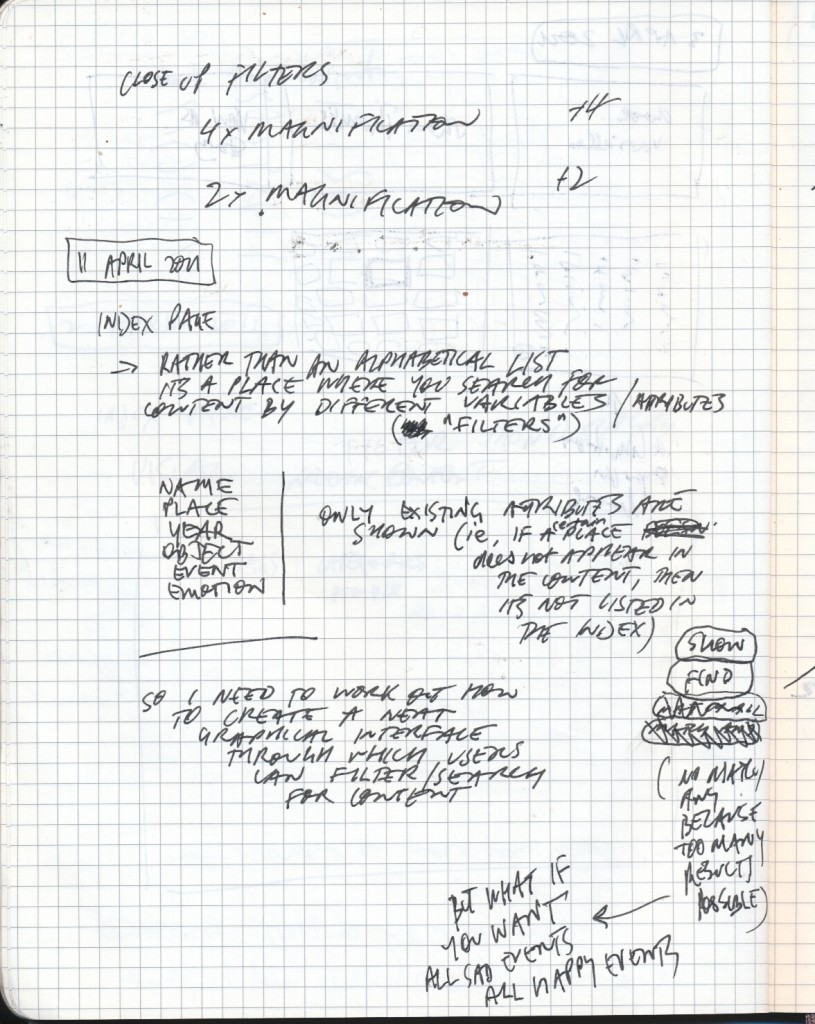 CLOSE UP FILTERS
4x MAGNIFICATION +4
2x MAGNIFICATION +2
11 APRIL 2011
INDEX PAGE
→ RATHER THAN AN ALPHABETICAL LIST
ITS A PLACE WHERE YOU SEARCH FOR
CONTENT BY DIFFERENT VARIABLES / ATTRIBUTES
("FILTERS")
NAME
PLACE
YEAR
OBJECT
EVENT
EMOTION
ONLY EXISTING ATTRIBUTES ARE
SHOWN (ie, IF A certain PLACE
does not APPEAR IN
THE CONTENT, THEN
IT'S NOT LISTED IN
THE INDEX)
SHOW
FIND
MATCH ALL
SO I NEED TO WORK OUT HOW
TO CREATE A NEAT
GRAPHICAL INTERFACE
THROUGH WHICH USERS
CAN FILTER/SEARCH
FOR CONTENT
(NO MATCH
ANY
BECAUSE
TOO MANY
RESULTS
POSSIBLE)
BUT WHAT IF
YOU WANT
ALL SAD EVENTS
ALL HAPPY EVENTS